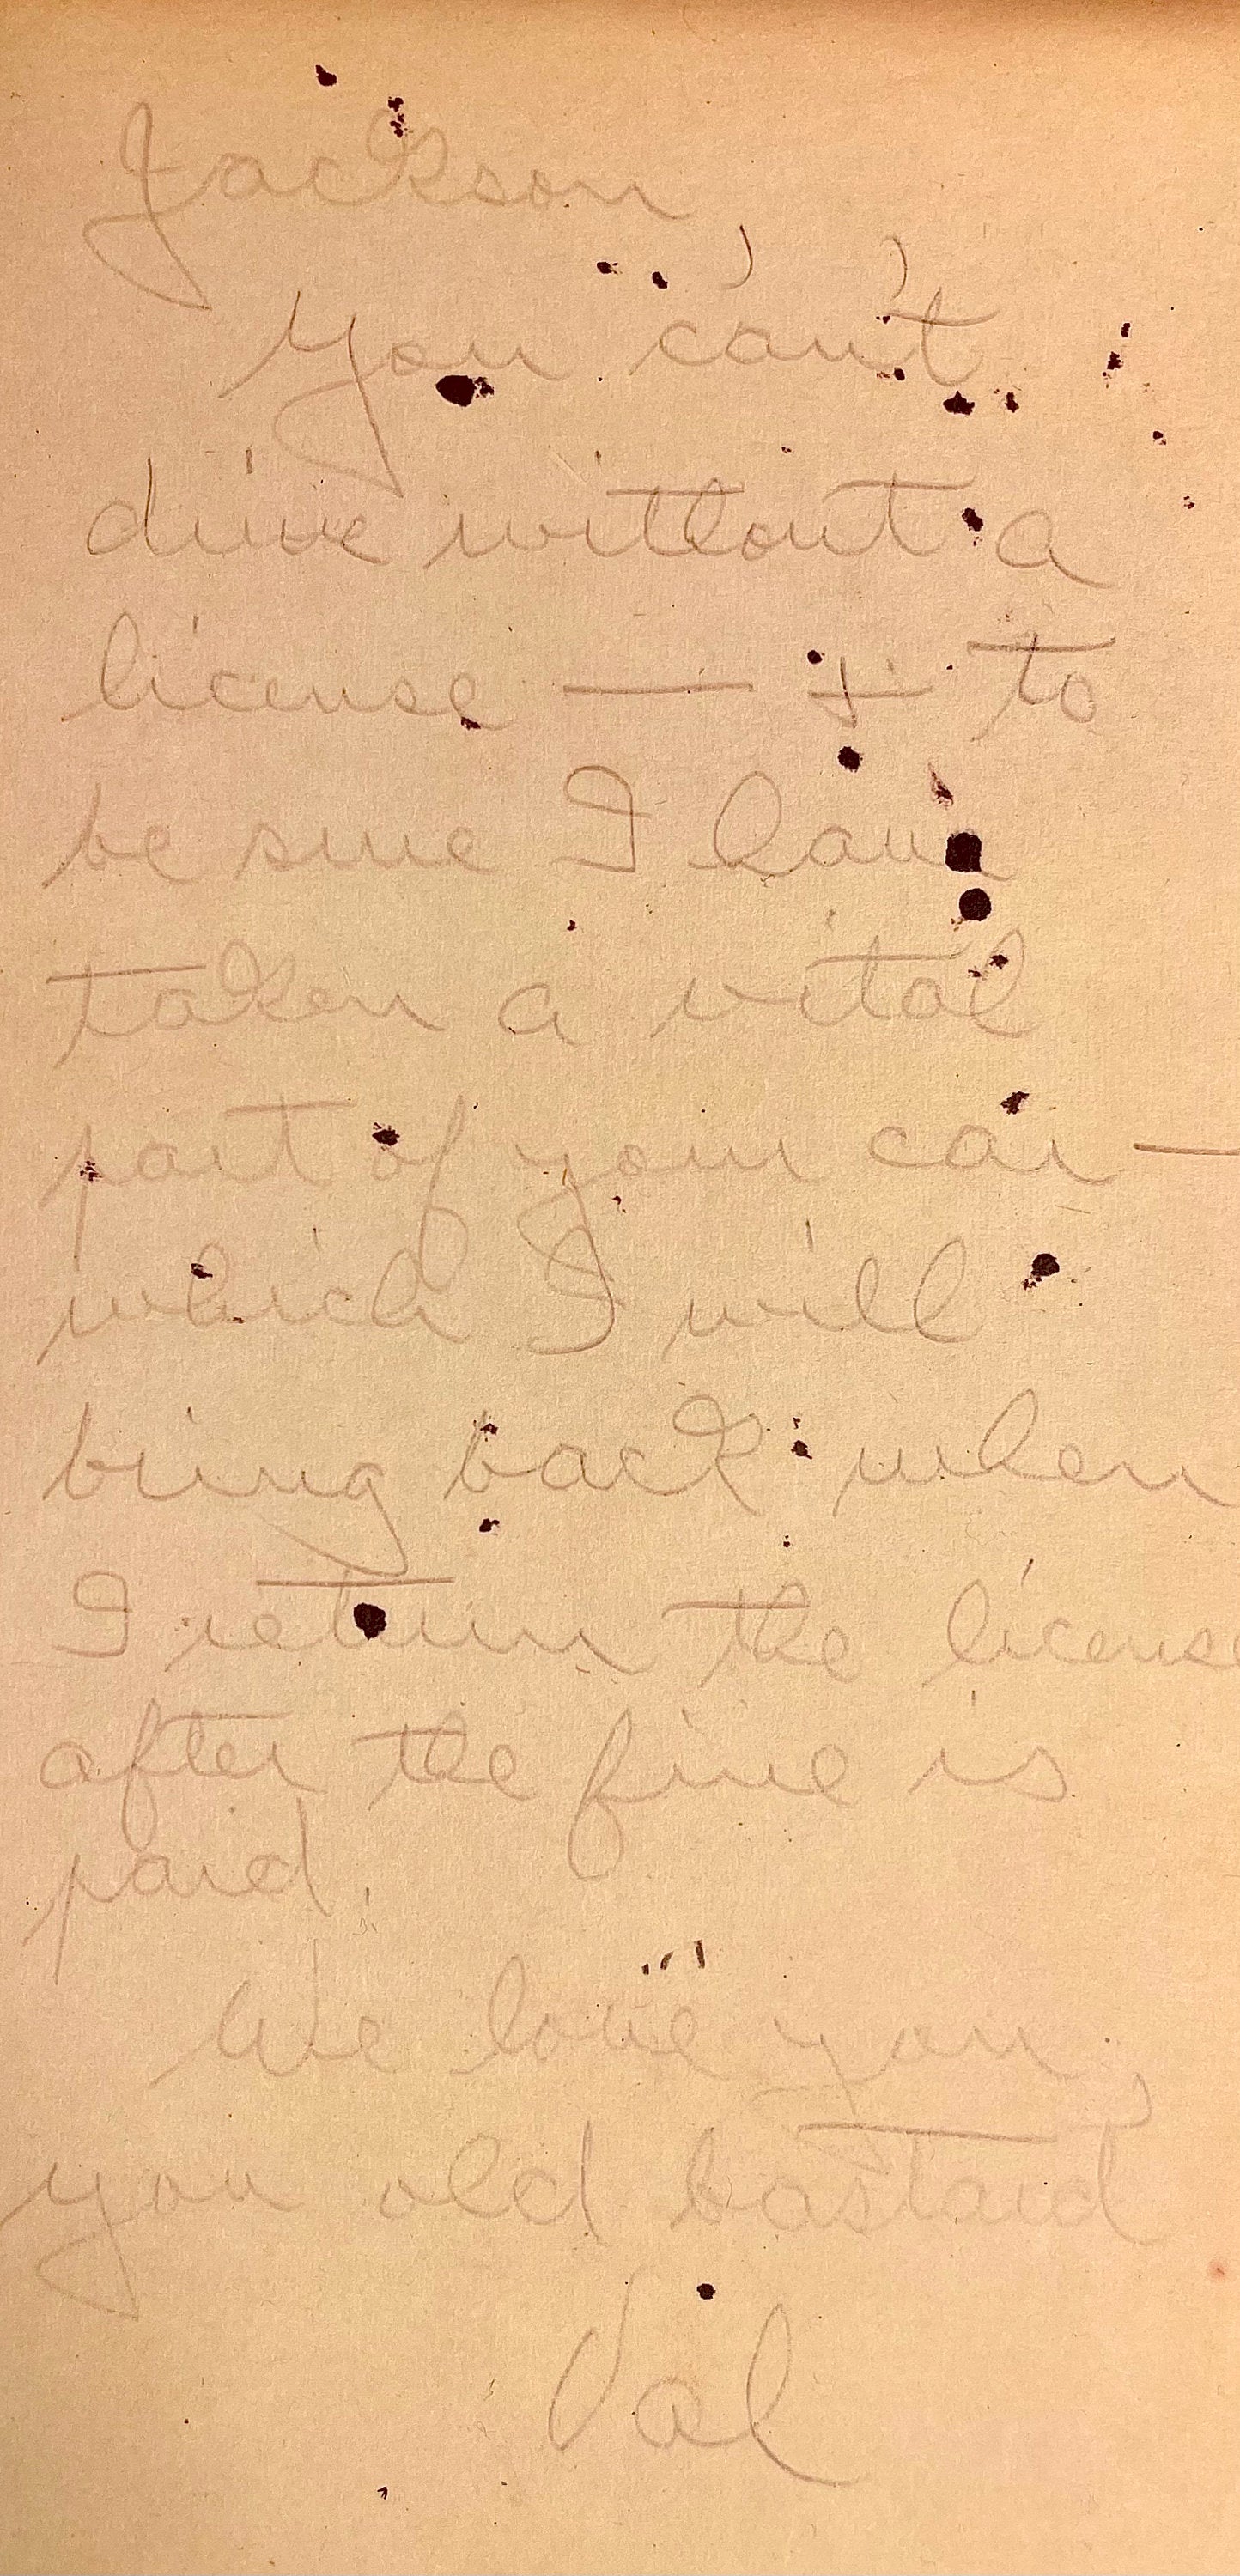 Jackson,
You can't
drive without a
license — & to
be sure I have
taken a vital
part of your car —
which I will
bring back when
I return the license
after the fine is
paid.
We love you,
you old bastard
Val